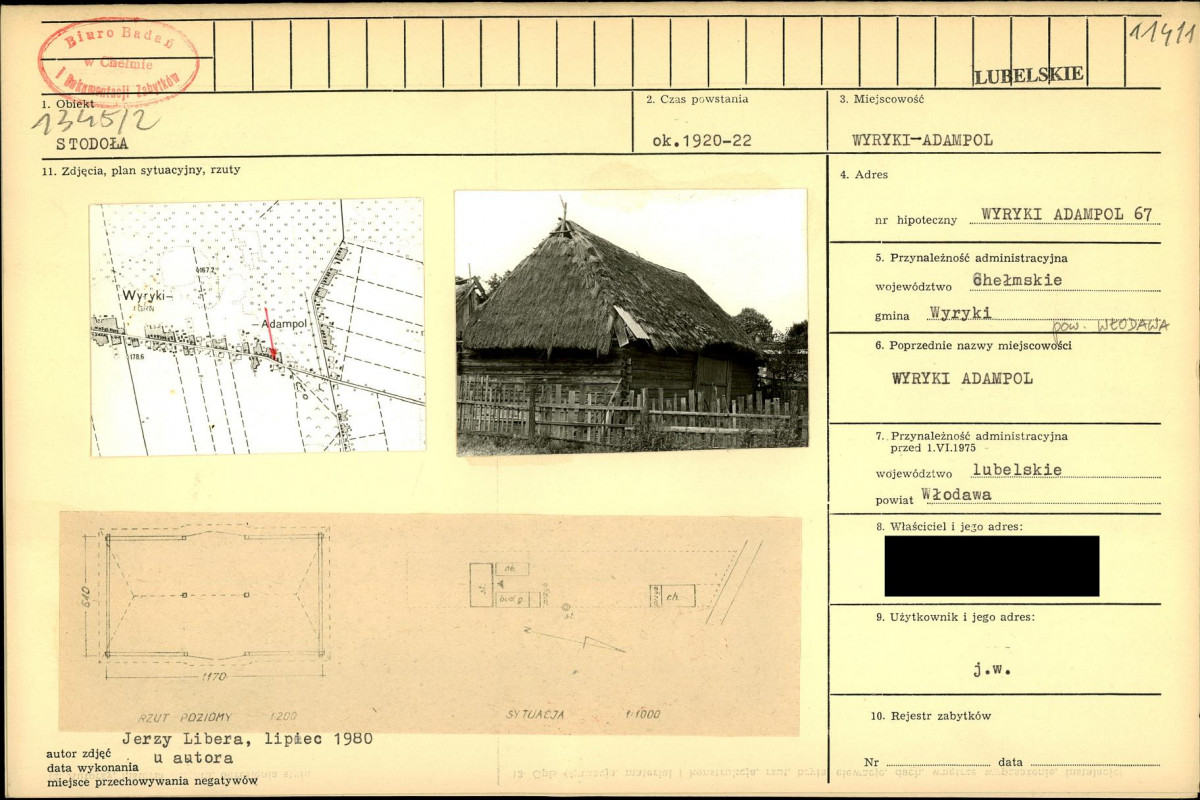 11411
Biuro Badań
w Chełmie
i Dokumentacji Zabytków
LUBELSKIE
1. Obiekt
1345/2
STODOŁA
2. Czas powstania
ok.1920-22
3. Miejscowość
WYRYKI-ADAMPOL
11. Zdjęcia, plan sytuacyjny, rzuty
Wyryki-
-Adampol
167.2
178,6
610
1170
RZUT POZIOMY 1:200
ob.
st.
bud. g.
st.
ch.
N
SYTUACJA 1:1000
Jerzy Libera, lipiec 1980
u autora
autor zdjęć
data wykonania
miejsce przechowywania negatywów
4. Adres
nr hipoteczny WYRYKI ADAMPOL 67
5. Przynależność administracyjna
województwo Chełmskie
gmina Wyryki
pow. WŁODAWA
6. Poprzednie nazwy miejscowości
WYRYKI ADAMPOL
7. Przynależność administracyjna
przed 1.VI.1975
województwo lubelskie
powiat Włodawa
8. Właściciel i jego adres:
9. Użytkownik i jego adres:
j.w.
10. Rejestr zabytków
Nr data